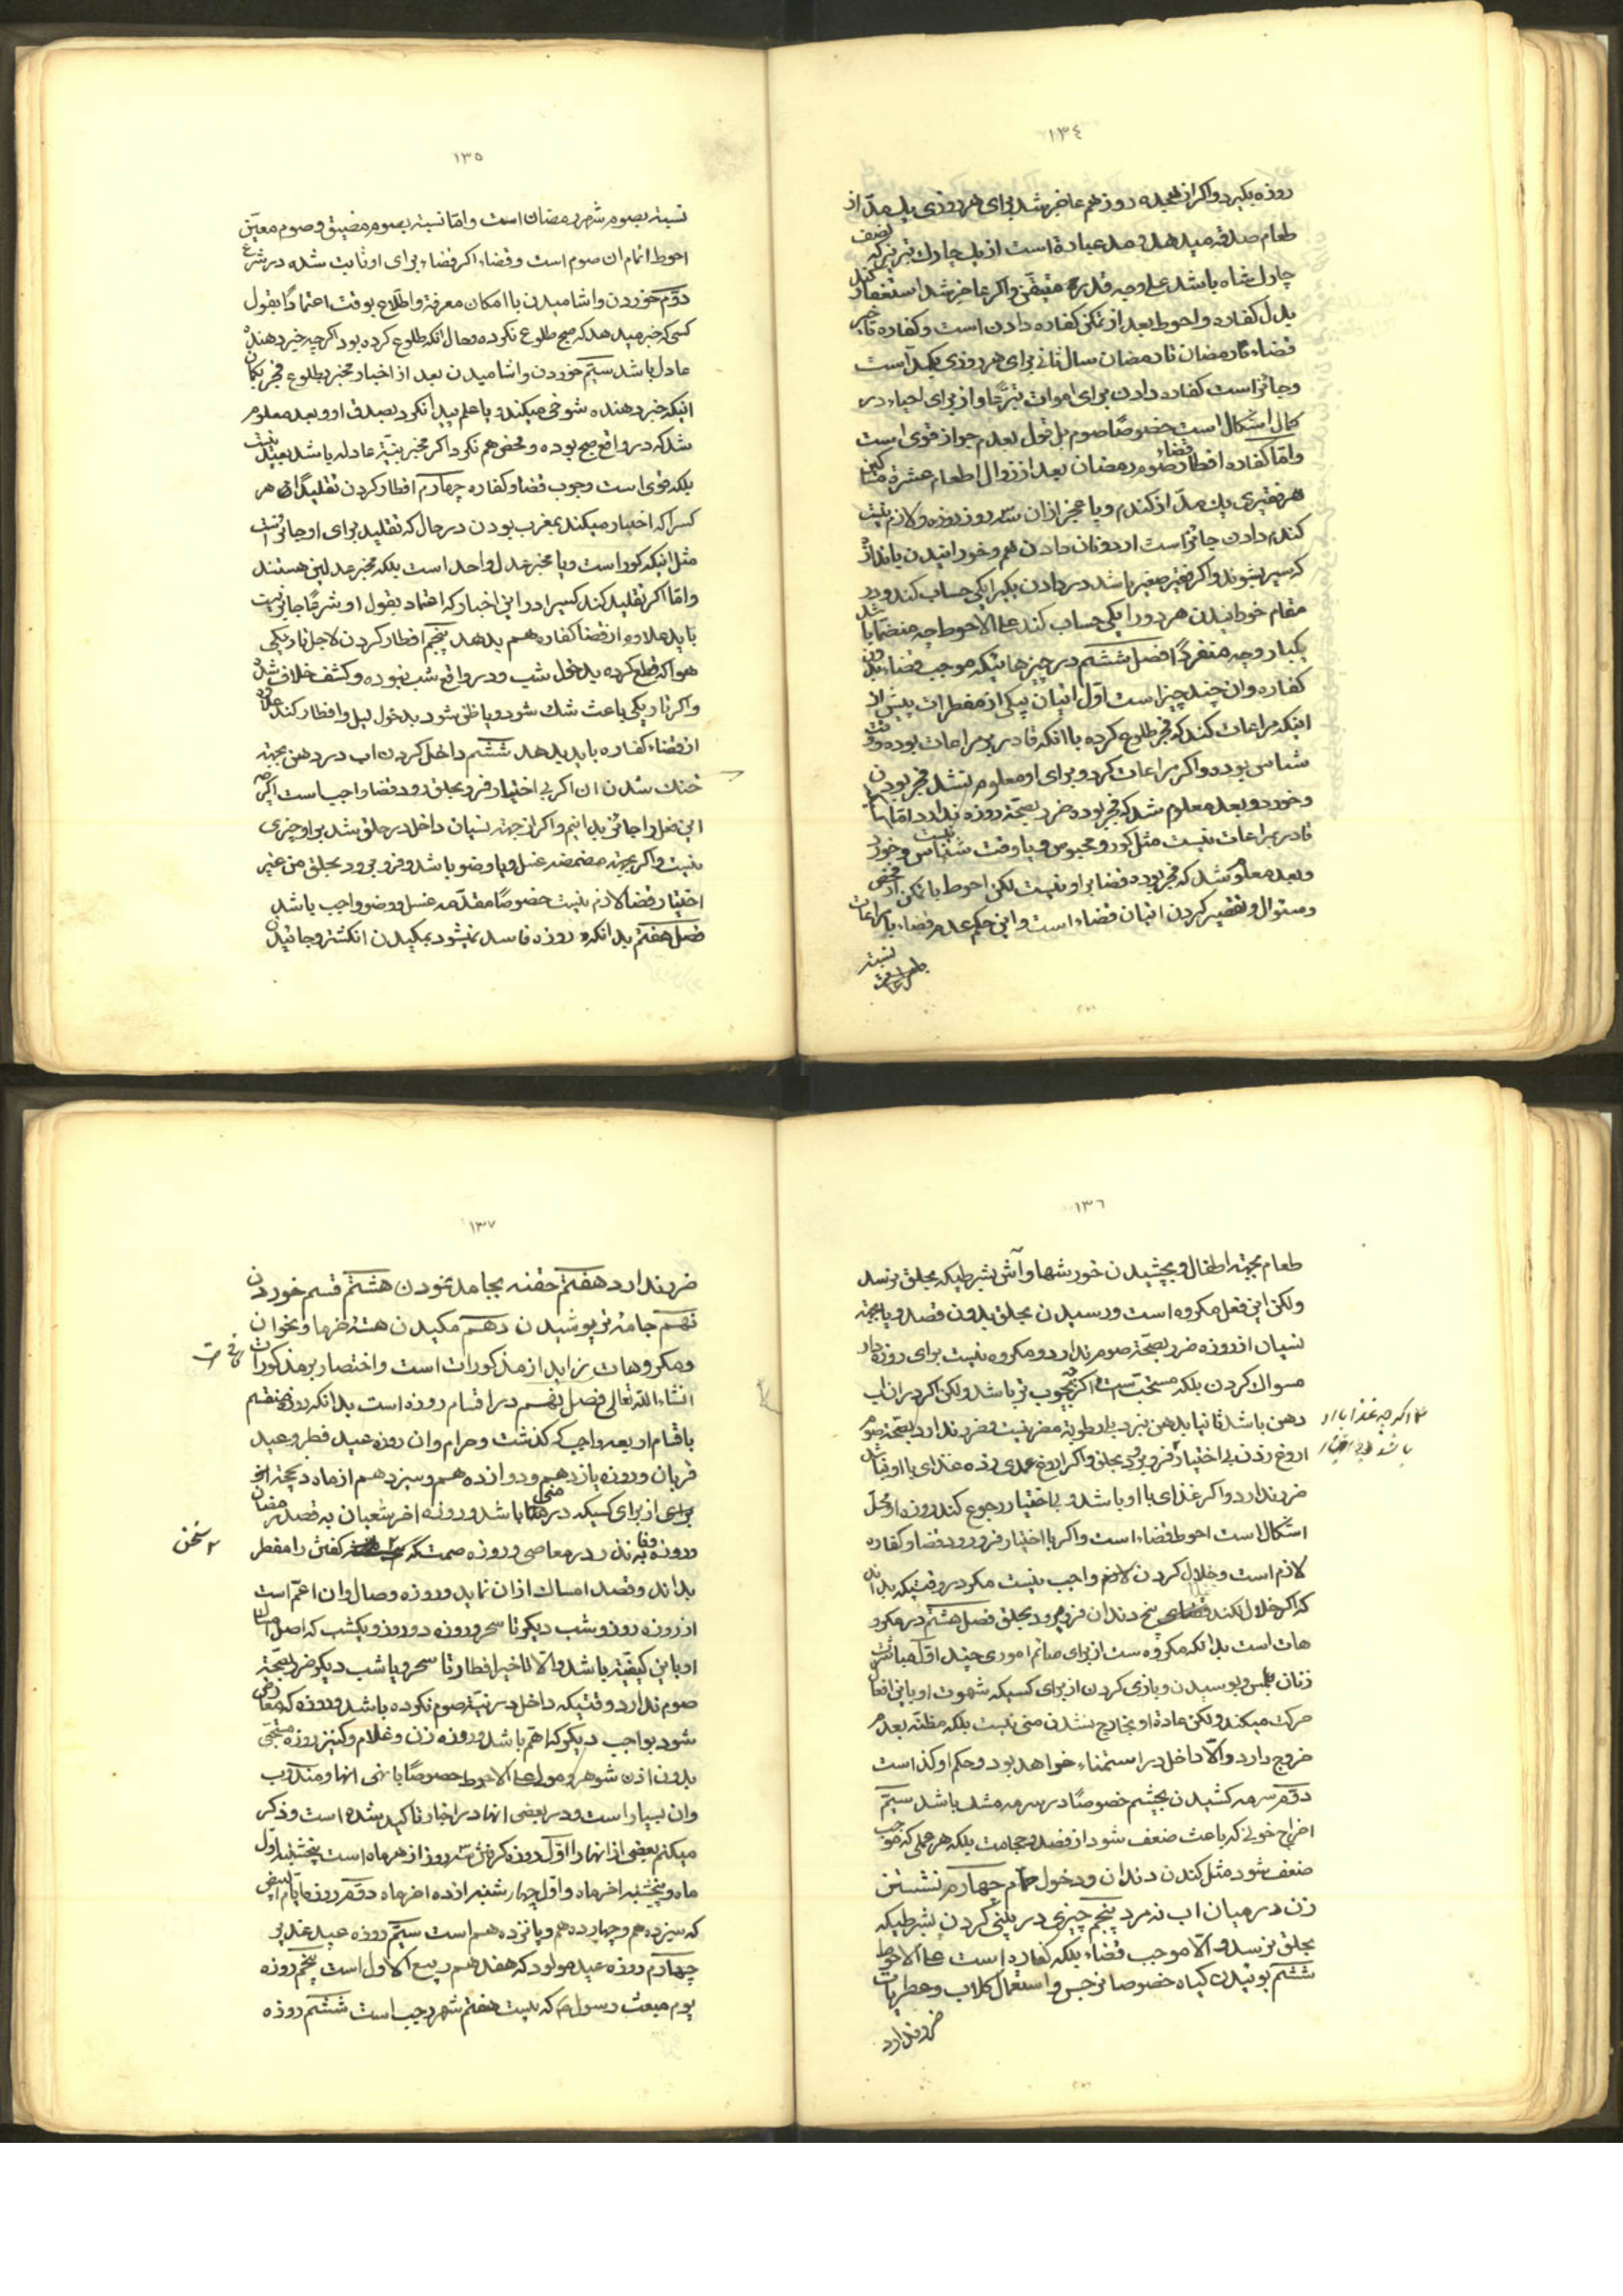 ١٣٤
روزه بكيرد واكر از هجده روز هم عاجز شد براى هر روزى يك مدّ از
طعام صدقه ميدهد ومد عبارة است از يك چارك تبريز كه نصف
چارك شاه باشد على وجه قدر متيقن واكر عاجز شد استغفار كند
بدل كفاره واحوط بعد از تمكن كفاره دادن است وكفاره تأخير
قضاء رمضان تا رمضان سال ثانى براى هر روزى يكمد است
وجائز است كفاره دادن براى اموات تبرّعًا واز براى احياء در
كمال اشكال است خصوصًا صوم بل قول بعدم جواز قوى است
واما كفاره افطار قضاء صوم رمضان بعد از زوال اطعام عشرة مساكين
هر فقيرى يك مدّ از كندم ويا عجز از ان سه روز روزه ولازم نيست
كندم دادن جائز است ارد ونان دادن هم وخورانيدن باندازه
كه سير بشوند واكر فقير صغير باشد در دادن يكيرا يكى حساب كند ودر
مقام خورانيدن هر دو را يكى حساب كند على الاحوط چه منضمًا باشد
يكبار وچه منفردًا فصل ششم در چيزهائيكه موجب قضاء بدون
كفاره وان چند چيز است اوّل اتيان بيكى از مفطرات پيش از
اينكه مراعات كند كه فجر طلوع كرده با انكه قادر بر مراعات بوده ووقت
شناس بوده واكر مراعات كرد وبراى او معلوم نشد فجر بودن
وخورد وبعد معلوم شد كه فجر بوده ضرر بصحة روزه ندارد اما
قادر بمراعات نيست مثل كور ومحبوس ويا وقت شناس نيست وخورد
وبعد معلوم شد كه فجر بوده قضا بر او نيست لكن احوط با تمكن از فحص
وسئوال وتقصير كردن اتيان قضاء است واين حكم عدم قضاء با مراعات
نسبة
١٣٥
نسبة بصوم شهر رمضان است واما نسبة بصوم مضيق وصوم معيّن
احوط اتمام ان صوم است وقضاء اكر قضاء براى او ثابت شده در شرع
دوّم خوردن واشاميدن با امكان معرفة واطّلاع بوقت اعتمادًا بقول
كسى كه خبر ميدهد كه صبح طلوع نكرده وحال انكه طلوع كرده بود اكر چه خبر دهنده
عادل باشد سيّم خوردن واشاميدن بعد از اخبار مخبر بطلوع فجر بكمان
اينكه خبر دهنده شوخى ميكند ويا علم پيدا نكرد بصدق او وبعد معلوم
شد كه در واقع صبح بوده وفحص هم نكرد واكر مخبر بيّنه عادله باشد بعيد نيست
بلكه قوى است وجوب قضا وكفاره چهارم افطار كردن تقليدًا از هر
كسرا كه اخبار ميكند بمغرب بودن در حال كه تقليد براى او جائز است
مثل اينكه كور است ويا مخبر عدل واحد است بلكه مخبر عدلين هستند
واما اكر تقليد كند كسيرا در اين اخبار كه اعتماد بقول او شرعًا جائز نيست
بايد علاوه از قضا كفاره هم بدهد پنجم افطار كردن لاجل تاريكى
هوا كه قطع كرده بدخول شب ودر واقع شب نبوده وكشف خلاف شد
واكر تاريكى باعث شك شود ويا ظن شود بدخول ليل وافطار كند علاوه
از قضاء كفاره بايد بدهد ششم داخل كردن اب در دهن بجهة
خنك شدن ان اكر بى اختيار فرو بحلق رود قضا واجب است اكر چه
اين فعل را جائز بدانيم واكر از جهة نسيان داخل در حلق شد بر او چيزى
نيست واكر بجهة مضمضه غسل ويا وضو باشد وفرو برود بحلق من غير
اختيار قضا لازم نيست خصوصًا مقدّمه غسل ووضو واجب باشد
فصل هفتم بدانكه روزه فاسد نميشود بمكيدن انكشتر وجائيدن
١٣٦
طعام بجهة اطفال وبچشيدن خورشها وآش بشرطيكه بحلق نرسد
ولكن اين فعل مكروه است ورسيدن بحلق بدون قصد ويا بجهة
نسيان از روزه ضرر بصحّة صوم ندارد ومكروه نيست براى روزه دار
مسواك كردن بلكه مستحبّ است اكر چه بچوب تر باشد ولكن اكر در ان اب
دهن باشد ثانيا بدهن نبرد يا رطوبة مضر نيست وضرر ندارد بصحّة صوم
اروغ زدن بى اختيار فرو برود بحلق واكر اروغ عمدى زده غذاى با او نباشد
ضرر ندارد واكر غذاى با او باشد وبى اختيار رجوع كند روزه او محلّ
اشكال است احوط قضاء است واكر با اختيار فرو رود قضا وكفاره
لازم است وخلال كردن لازم واجب نيست مكر در وقتيكه بداند
كه اكر خلال نكند بيخ دندان فرو ميرود بحلق فصل هشتم در مكرو
هات است بدانكه مكروه ست از براى صائم امورى چند اوّل مباشرت
زنان بلمس وبوسيدن وبازى كردن از براى كسيكه شهوت او باين افعال
حركت ميكند ولكن عادة او بخارج نشدن منى نيست بلكه مظنّه بعدم
خروج دارد والّا داخل در استمناء خواهد بود وحكم او كذ است
دوّم سرمه كشيدن بچشم خصوصًا در سرمه مشك باشد سيّم
اخراج خونى كه باعث ضعف شود از فصد وحجامت بلكه هر عملى كه موجب
ضعف شود مثل كندن دندان ودخول حمام چهارم نشستن
زن در ميان اب نه مرد پنجم چيزى در بينى كردن بشرطيكه
بحلق نرسد والّا موجب قضاء بلكه كفاره است على الاحوط
ششم بوئيدن كياه خصوصا نرجس واستعمال كلاب وعطريات
ضرر ندارد
اكر چه غذا با او
باشد وبى اختيار
١٣٧
ضرر ندارد هفتم حقنه بجامد نمودن هشتم قسم خوردن
نهم جامه تر پوشيدن دهم مكيدن هسته خرما ونخوان
ومكروهات زايد از مذكورات است واختصار بر مذكورات
انشاء اللّه تعالى فصل نهم در اقسام روزه است بدانكه روزه منقسم
باقسام اربعه واجب كه كذشت وحرام وان روزه عيد فطر وعيد
قربان وروزه يازدهم ودوازدهم وسيزدهم از ماه ذيحجة الحرام
از براى كسيكه در منى باشد وروزه اخر شعبان به قصد رمضان
وروزه وفا به نذر در معاصى وروزه صمت كه كفتن را مفطر
بداند وقصد امساك از ان نمايد وروزه وصال وان اعمّ است
از روزه روز وشب ديكر تا سحر وروزه دو روز ويكشب كه اصل امساك
او باين كيفيّة باشد والّا تاخير افطار تا سحر ويا شب ديكر ضرر بصحّة
صوم ندارد وقتيكه داخل در نيّة صوم نكرده باشد وروزه كه معارض
شود بواجب ديكر كه اهم باشد وروزه زن وغلام وكنيز روزه مستحبّى
بدون اذن شوهر ومولى على الاحوط خصوصًا با نهى انها ومندوب
وان بسيار است ودر بعضى انها در اخبار تاكيد شده است وذكر
ميكنم بعضى از انها را اوّل روزه كرفتن سه روز از هر ماه است پنجشنبه اوّل
ماه وپنجشنبه اخر ماه واوّل چهار شنبه از ده اخر ماه دوّم روزه ايام البيض
كه سيزدهم وچهاردهم وپانزدهم است سيّم روزه عيد غدير
چهارم روزه عيد مولود كه هفدهم ربيع الاول است پنجم روزه
يوم مبعث رسول ص كه بيست هفتم شهر رجب است ششم روزه
سخن